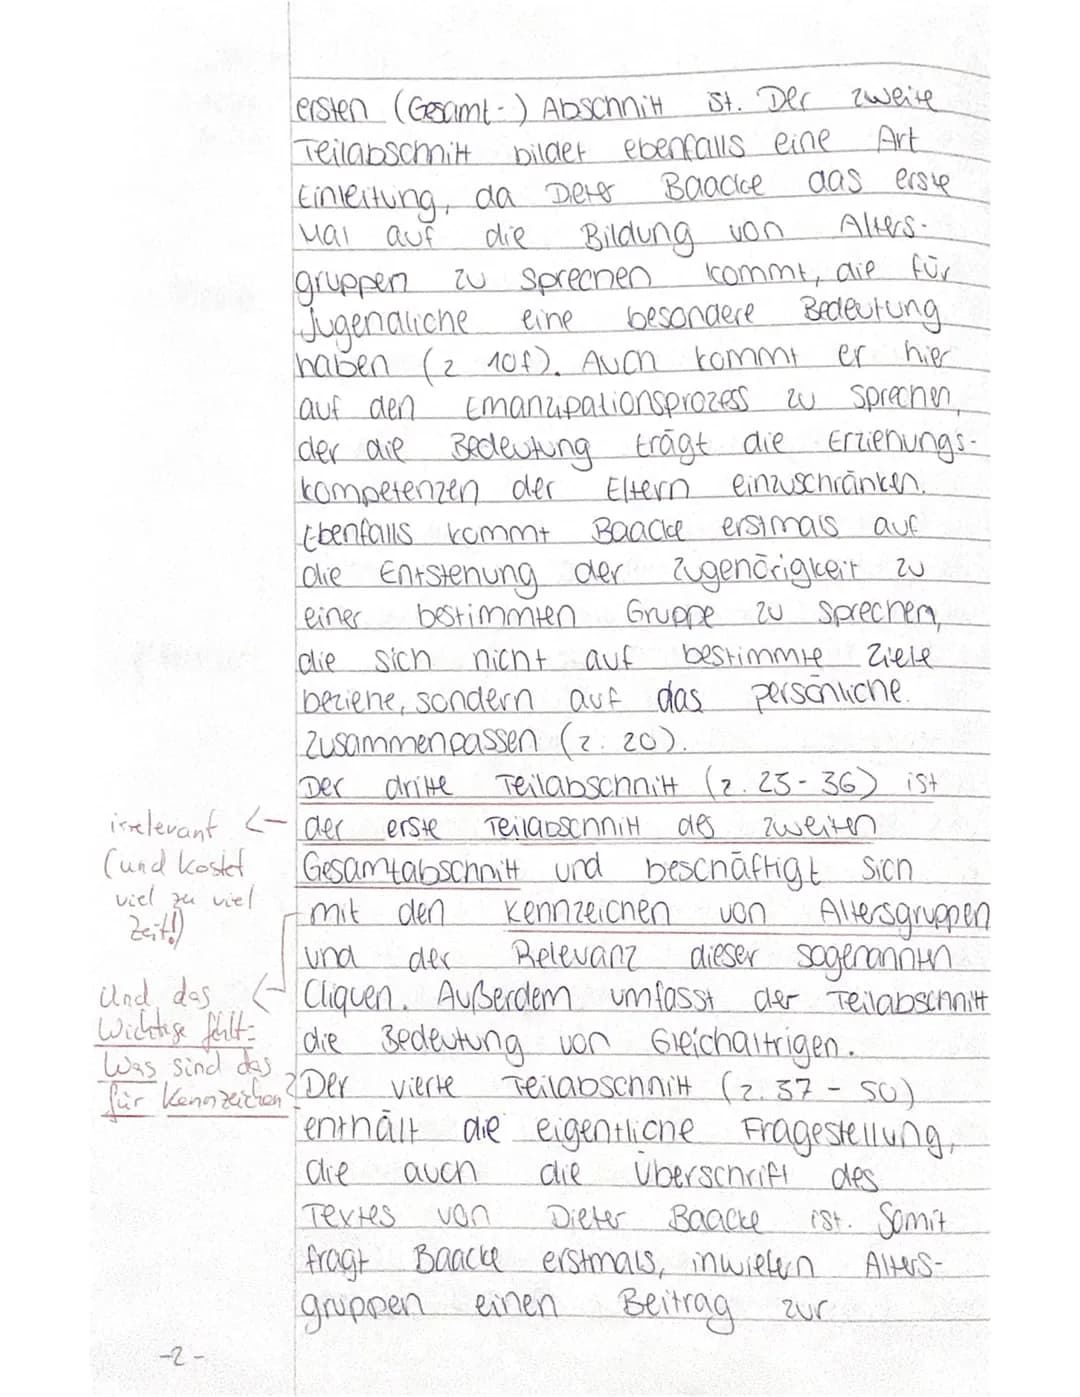 ersten (Gesamt-) Abschnitt ist. Der zweite
Teilabschnitt bildet ebenfalls eine Art
Einleitung, da Dieter Baacke das erste
Mal auf die Bildung von Alters-
gruppen zu sprechen kommt, die für
Jugendliche eine besondere Bedeutung
haben (z 10f). Auch kommt er hier
auf den Emanzipationsprozess zu sprechen,
der die Bedeutung trägt die Erziehungs-
kompetenzen der Eltern einzuschränken.
Ebenfalls kommt Baacke erstmals auf
die Entstehung der Zugehörigkeit zu
einer bestimmten Gruppe zu sprechen,
die sich nicht auf bestimmte Ziele
beziehe, sondern auf das persönliche
Zusammenpassen (z. 20).
Der dritte Teilabschnitt (z. 23-36) ist
irrelevant <- der erste Teilabschnitt des zweiten
(und kostet Gesamtabschnitt und beschäftigt sich
viel zu viel mit den Kennzeichen von Altersgruppen
Zeit!) und der Relevanz dieser sogenannten
Und das Cliquen. Außerdem umfasst der Teilabschnitt
Wichtige fehlt: die Bedeutung von Gleichaltrigen.
Was sind das Der vierte Teilabschnitt (z. 37 - 50)
für Kennzeichen? enthält die eigentliche Fragestellung,
die auch die Überschrift des
Textes von Dieter Baacke ist. Somit
fragt Baacke erstmals, inwiefern Alters-
gruppen einen Beitrag zur
-2-